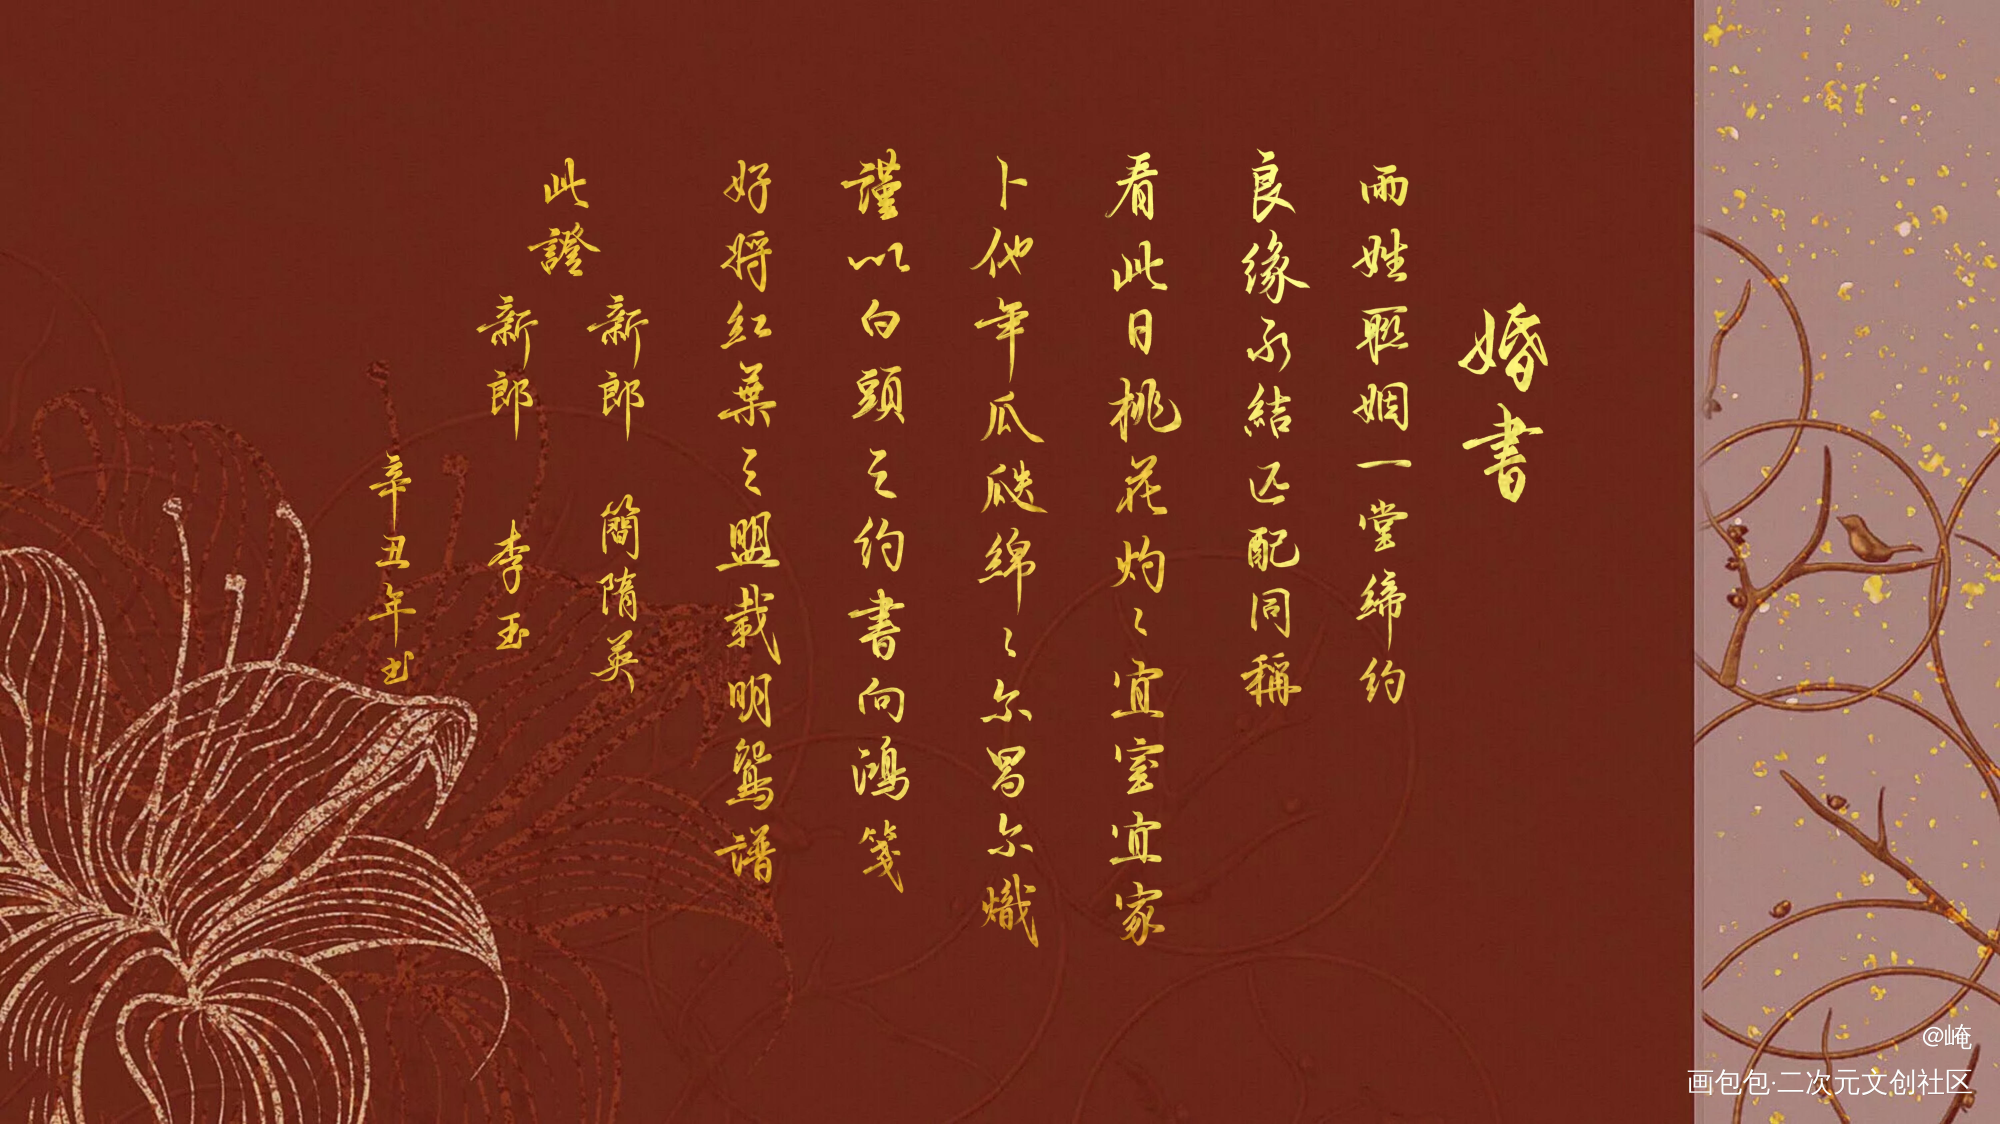 婚書
兩姓聯姻一堂締約
良缘永結匹配同稱
看此日桃花灼〻宜室宜家
卜他年瓜瓞綿〻尔昌尔熾
謹以白頭之约書向鴻箋
好將紅葉之盟载明鴛譜
此證
新郎 簡隋英
新郎 李玉
辛丑年书
@崦
画包包·二次元文创社区